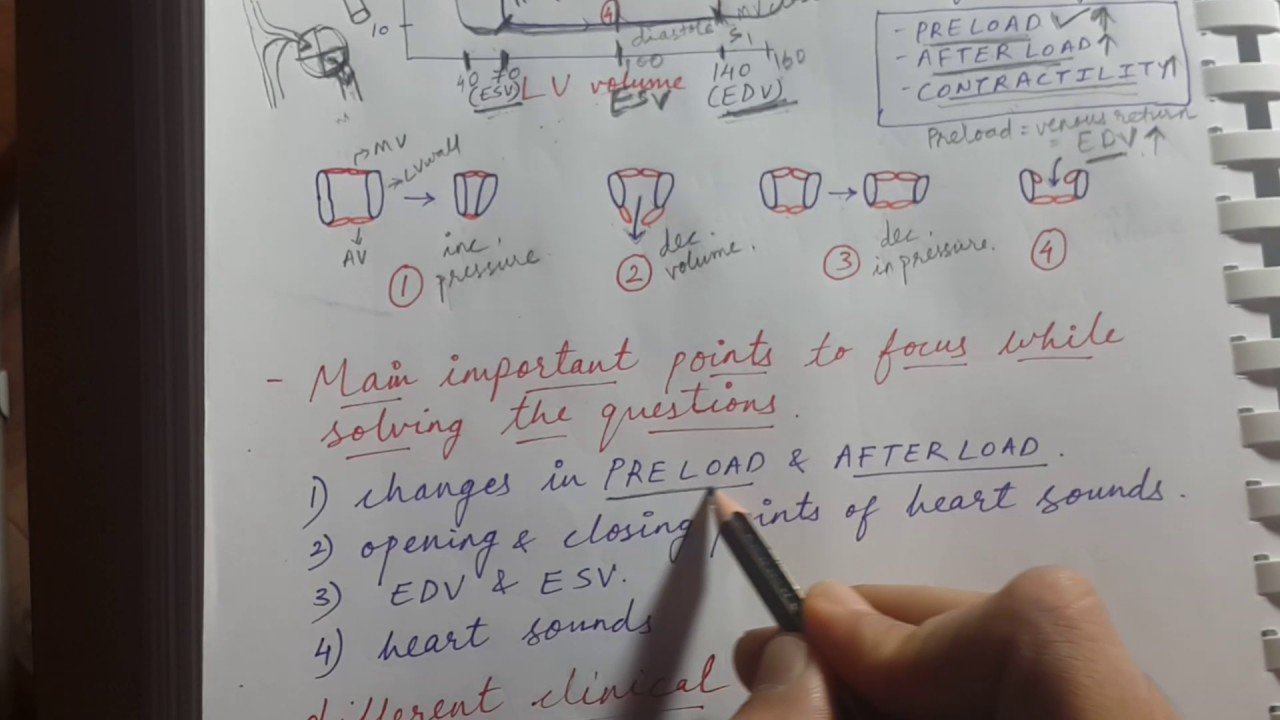 10
④
diastole
S1
40 70 160 140 160
(ESV) LV volume ESV (EDV)
- PRELOAD ✓ ↑
- AFTERLOAD ↑
- CONTRACTILITY ↑
Preload = venous return
= EDV ↑
→ MV
→ LV wall
AV
① inc. pressure
② dec. volume.
③ dec. in pressure.
④
- Main important points to focus while
solving the questions.
1) changes in PRELOAD & AFTERLOAD.
2) opening & closing ints of heart sounds.
3) EDV & ESV.
4) heart sounds
different clinical